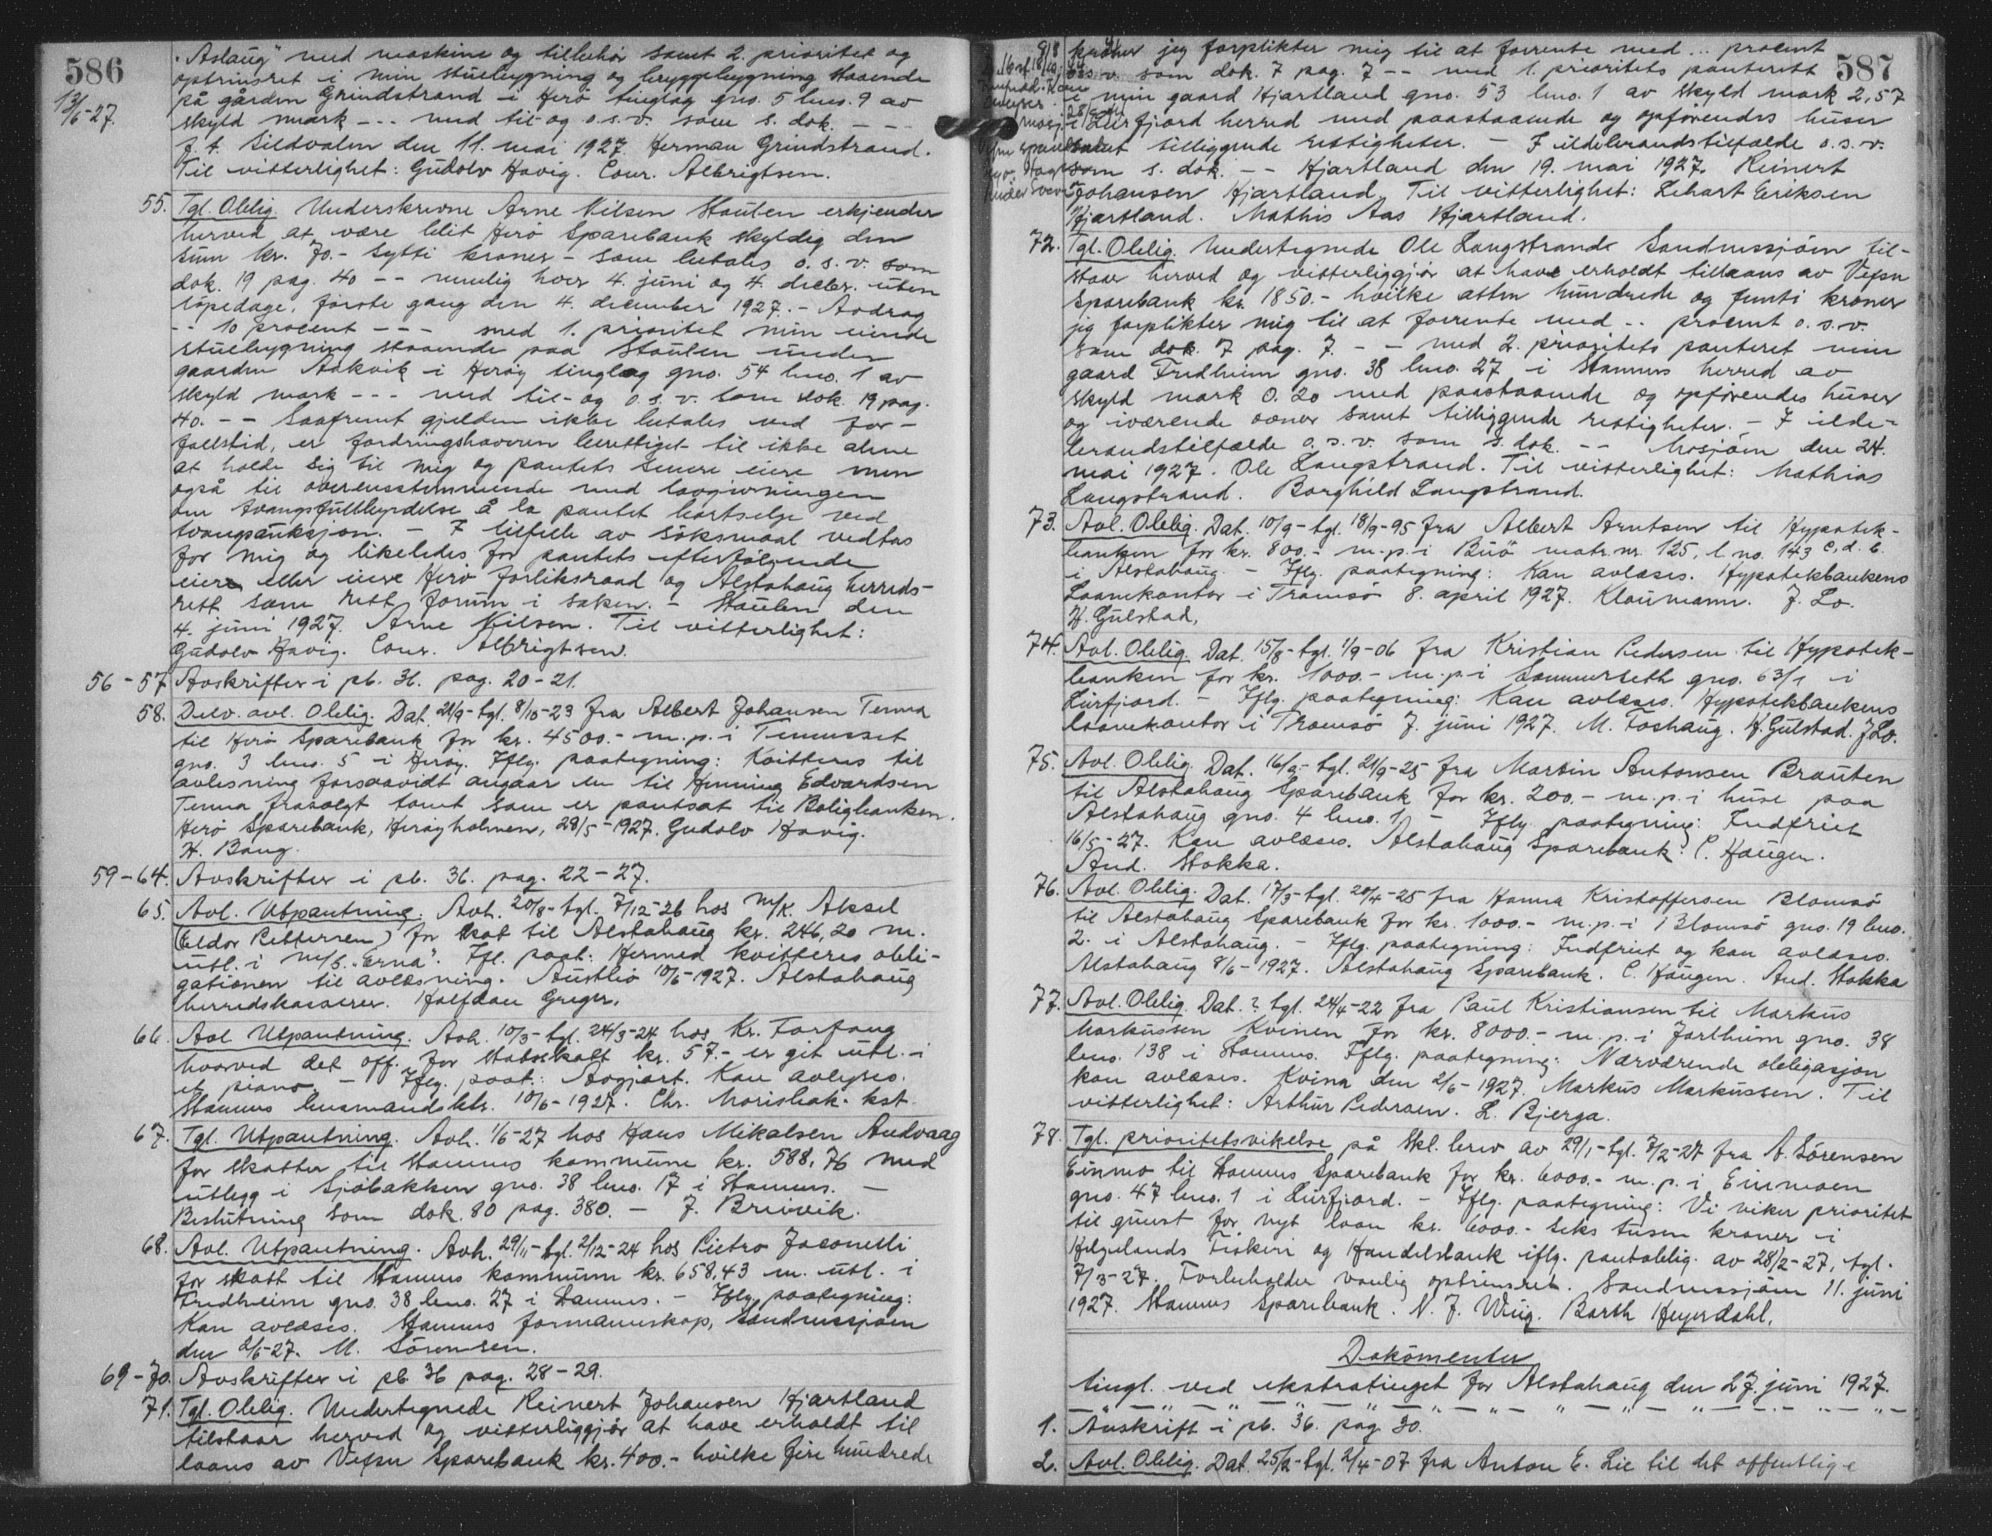 586
13/6-27.
"Aslaug" med maskine og tilbehör samt 2. prioritet og
optrinsret i min stuebygning og bryggebygning staaende
på gården Grindstrand i Herö tinglag gno. 5 bno. 9 av
skyld mark --- med til- og o.s.v. som s. dok. ---
f.t. Sildvalen den 11. mai 1927. Herman Grindstrand.
Til vitterlighet: Gudolv Havig. Conr. Albrigtsen.
55. Tgl. Oblig. Underskrevne Arne Nilsen Staulen erkjender
herved at være blit Herö Sparebank skyldig den
sum kr. 70.- sytti kroner - som betales o.s.v. som
dok. 19 pag. 40 -- nemlig hver 4. juni og 4. decbr. uten
löpedage, förste gang den 4. december 1927. - Avdrag
-- 10 procent --- med 1. prioritet min eiende
stuebygning staaende paa Staulen under
gaarden Aakvik i Heröy tinglag gno. 54 bno. 1 av
skyld mark --- med til- og o.s.v. som dok. 19 pag.
40. -- Saafremt gjelden ikke betales ved for-
fallstid, er fordringshaveren berettiget til ikke alene
at holde sig til mig og pantets senere eiere men
også til overensstemmende med lovgivningen
om tvangsfullbyrdelse å la pantet bortselge ved
tvangsauksjon. - I tilfelle av söksmaal vedtas
for mig og likeledes for pantets efterfölgende
eiere eller eiere Herö forliksraad og Alstahaug herreds-
rett som rett forum i saken. - Staulen den
4. juni 1927. Arne Nilsen. Til vitterlighet:
Gudolv Havig. Conr. Albrigtsen.
56-57 Avskrifter i pb. 36. pag. 20-21.
58. Delv. avl. Oblig. Dat. 21/9- tgl. 8/10-23 fra Albert Johansen Tenna
til Herö Sparebank for kr. 4500.- m.p. i Tennesset
gno. 3 bno. 5 i Heröy. Iflg. paategning: Kvitteres til
avlesning forsaavidt angaar en til Henning Edvardsen
Tenna frasolgt tomt som er pantsat til Boligbanken.
Herö Sparebank, Heröyholmen, 28/5-1927. Gudolv Havig.
H. Bang.
59-64. Avskrifter i pb. 36. pag. 22-27.
65. Avl. Utpantning. Avh. 20/8- tgl. 7/12-26 hos m/k. Aksel
(Eldor Pettersen) for skat til Alstahaug kr. 246,20 m.
utl. i m/b. "Erna". Ifl. paat: Hermed kvitteres obli-
gationen til avlæsning. Austbö 10/6-1927. Alstahaug
herredskasserer. Halfdan Greger.
66. Avl Utpantning. Avh. 10/3- tgl. 24/3-24 hos Kr. Forfang
hvorved det off. for statsskatt kr. 57.- er git utl. i
et piano. - Iflg. paat.: Avgjort. Kan avlyses.
Stamnes lensmandsktr. 10/6-1927. Chr. Morisbak. kst.
67. Tgl. Utpantning. Avh. 1/6-27 hos Hans Mikalsen Andvaag
for skatter til Stamnes kommune kr. 588,76 med
utlegg i Sjöbakken gno. 38 bno. 17 i Stamnes. -
Beslutning som dok. 80 pag. 380. - J. Brivik.
68. Avl. Utpantning. Avh. 29/11- tgl. 2/12-24 hos Pietro Jaconelli
for skatt til Stamnes kommune kr. 658,43 m. utl. i
Fredheim gno. 38 bno. 27 i Stamnes. - Iflg. paategning:
Kan avlæses. Stamnes formannskap, Sandnessjøen
den 2/6-27. M. Sörensen.
69-70. Avskrifter i pb 36 pag. 28-29.
71. Tgl. Oblig. Undertegnede Reinert Johansen Hjartland
tilstaar herved og vitterliggjör at have erholdt til
laans av Vefsn Sparebank kr. 400.- hvilke fire hundrede
587
kroner jeg forplikter mig til at forrente med .. procent
o.s.v. som dok. 7 pag. 7 -- med 1. prioritets panterett
i min gaard Hjartland gno. 53 bno. 1 av skyld mark 2,57
i Leirfjord herred med paastaaende og opförendes huser
samt tilliggende rettigheter. - I ildebrandstilfælde o.s.v.
som s. dok. -- Hjartland den 19. mai 1927. Reinert
Johansen Hjartland. Til vitterlighet: Lehart Eriksen
Hjartland. Mathis Aas Hjartland.
72. Tgl. Oblig. Undertegnede Ole Langstrand Sandnessjöen til-
staar herved og vitterliggjör at have erholdt tillaans av Vefsn
Sparebank kr. 1850.- hvilke atten hundrede og femti kroner
jeg forplikter mig til at forrente med .. procent o.s.v.
som dok. 7 pag. 7. -- med 2. prioritets panteret min
gaard Fredheim gno. 38 bno. 27 i Stamnes herred av
skyld mark 0.20 med paastaaende og opförendes huser
og iværende ovner samt tilliggende rettigheter. - I ilde-
brandstilfælde o.s.v. som s. dok. -- Mosjöen den 24.
mai 1927. Ole Langstrand. Til vitterlighet: Mathias
Langstrand. Borghild Langstrand.
73. Avl. Oblig. Dat. 10/9- tgl. 18/9-95 fra Albert Arntsen til Hypotek-
banken for kr. 800.- m.p. i Buö matr. nr. 125, l. no. 143 c, d. b.
i Alstahaug. - Iflg. paategning: Kan avlæses. Hypotekbankens
Laanekontor i Tromsö 8. april 1927. Klaumann. J. Lo.
H. Gulstad.
74. Avl. Oblig. Dat. 15/8- tgl. 1/9-06 fra Kristian Pedersen til Hypotek-
banken for kr. 1000.- m.p. i Sommerseth gno. 63/1 i
Leirfjord. - Iflg. paategning: Kan avlæses. Hypotekbankens
laanekontor i Tromsö 7. juni 1927. M. Foshaug. H. Gulstad. J Lo.
75. Avl. Oblig. Dat. 16/9- tgl. 21/9-25 fra Martin Antonsen Brauten
til Alstahaug Sparebank for kr. 200.- m.p. i huse paa
Alstahaug gno. 4 bno. 1. - Iflg. paategning: Indfriet
16/5-27. Kan avlæses. Alstahaug Sparebank. C. Haugen.
And. Stokka.
76. Avl. Oblig. Dat. 17/3- tgl. 20/4-25 fra Hanna Kristoffersen Blomsö
til Alstahaug Sparebank for kr. 1000.- m.p. i Blomsö gno. 19 bno.
2. i Alstahaug. - Iflg. paategning: Indfriet og kan avlæses.
Alstahaug 8/6-1927. Alstahaug Sparebank. C. Haugen. And. Stokka
77. Avl. Oblig. Dat. ? tgl. 24/4-22 fra Paul Kristiansen til Markus
Markussen Kvinen for kr. 8000.- m.p. i Jartheim gno. 38
bno. 138 i Stamnes. Iflg. paategning: Nærværende obligasjon
kan avlæses. Kvina den 2/6-1927. Markus Markussen. Til
vitterlighet: Arthur Pedersen. L. Bjerga.
78. Tgl. prioritetsvikelse på Skl. brev av 29/1- tgl. 7/2-27 fra A. Sörensen
Einmo til Stamnes Sparebank for kr. 6000.- m.p. i Einmoen
gno. 47 bno. 1 i Leirfjord. - Iflg. paategning: Vi viker prioritet
til gunst for nytt laan kr. 6000.- seks tusen kroner i
Helgelands Fiskeri og Handelsbank iflg. pantoblig. av 28/2-27, tgl.
7/3-27. Forbeholder vanlig optrinsret. Sandnessjöen 11. juni
1927. Stamnes Sparebank. N. J. Wiig. Barth Heyerdahl.
Dokumenter
tingl. ved ekstratinget for Alstahaug den 27. juni 1927.
1. Avskrift i pb. 36. pag. 30.
2. Avl. Oblig. Dat. 25/2- tgl. 2/4-07 fra Anton E. Lie til det offentlige